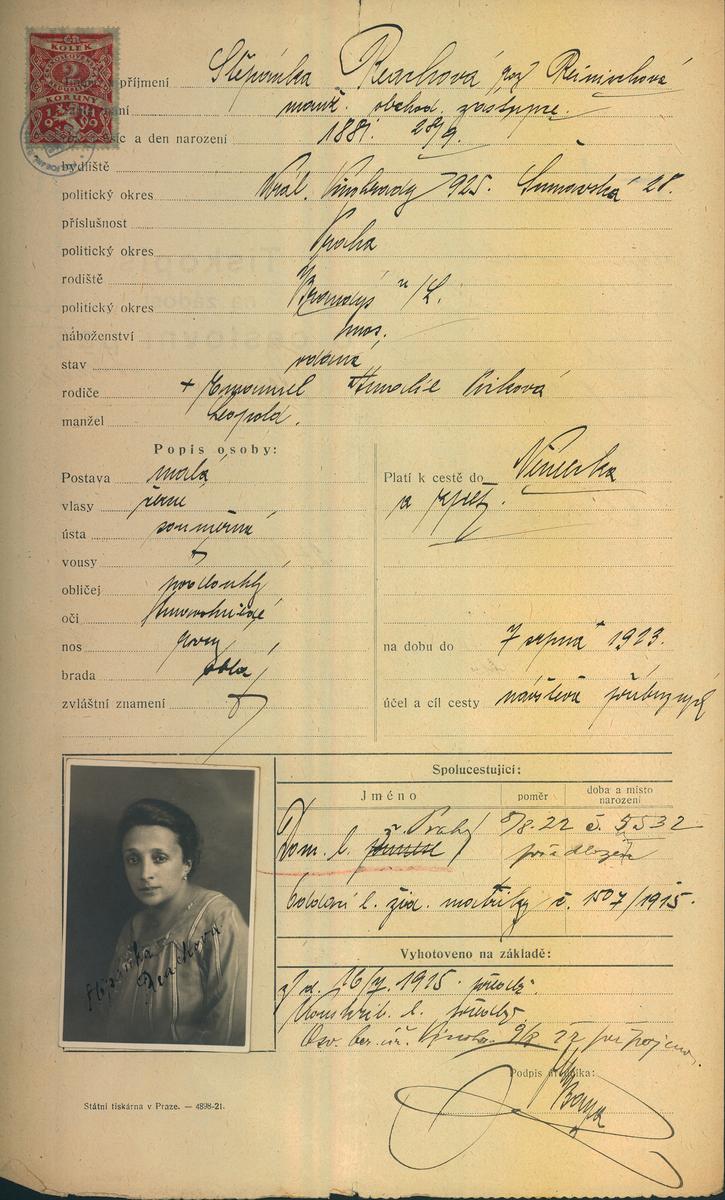 ČR
KOLEK
2
KORUNY
příjmení Štěpánka Reachová roz. Reinischová
manž. obchod. zástupce.
a den narození 1881. 28/9.
bydliště
politický okres Král. Vinohrady 925. Šumavská 28.
příslušnost
politický okres Praha
rodiště
politický okres Brandýs n/L.
náboženství mos.
stav vdaná
rodiče + Emanuel Amalie
manžel Leopold.
Popis osoby:
Postava malá
vlasy černé
ústa souměrná
vousy
obličej podlouhlý
oči tmavohnědé
nos rovný
brada oblá
zvláštní znamení
Platí k cestě do Německa
a zpět.
na dobu do 7 srpna 1923.
účel a cíl cesty návštěva příbuzných
Spolucestující:
Jméno
poměr
doba a místo narození
Dom. l. Prahy 5/8.22 č. 5532
předložen
Oddací l. žid. matriky č. 1507/1915.
Vyhotoveno na základě:
d. 16/7. 1915 předlž.
l. předlž.
Osv. ber. úř. 9/8 22 připojeno.
Podpis úředníka:
Štěpánka
Reachová
Státní tiskárna v Praze. — 4898-21.